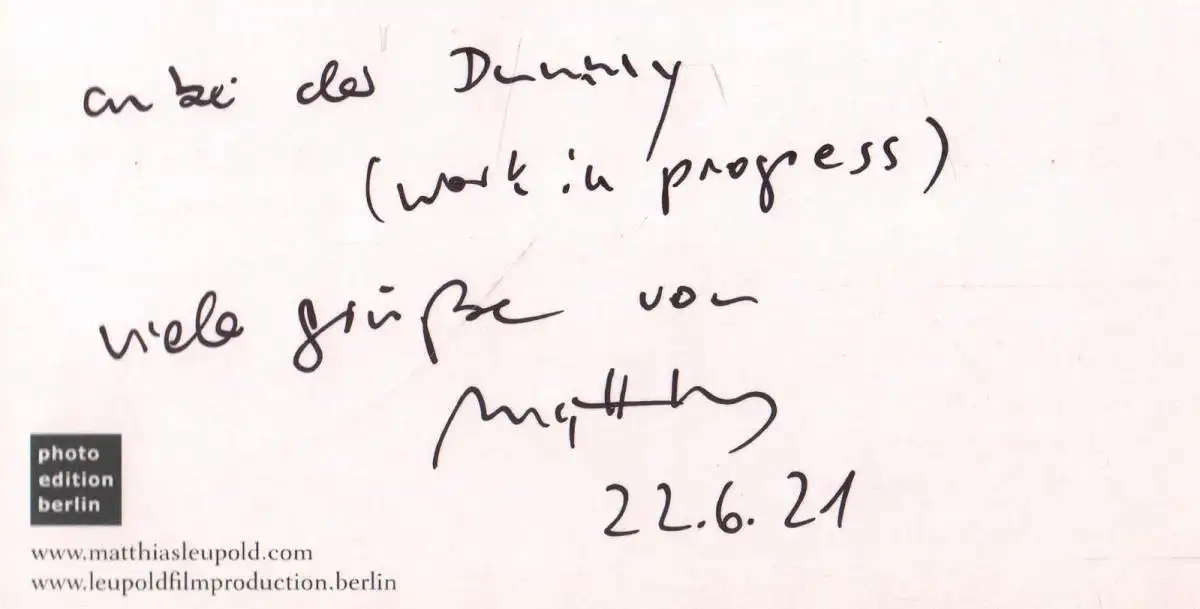 anbei der Dummy
(work in progress)
viele grüße von
Matthias
22.6.21
photo
edition
berlin
www.matthiasleupold.com
www.leupoldfilmproduction.berlin